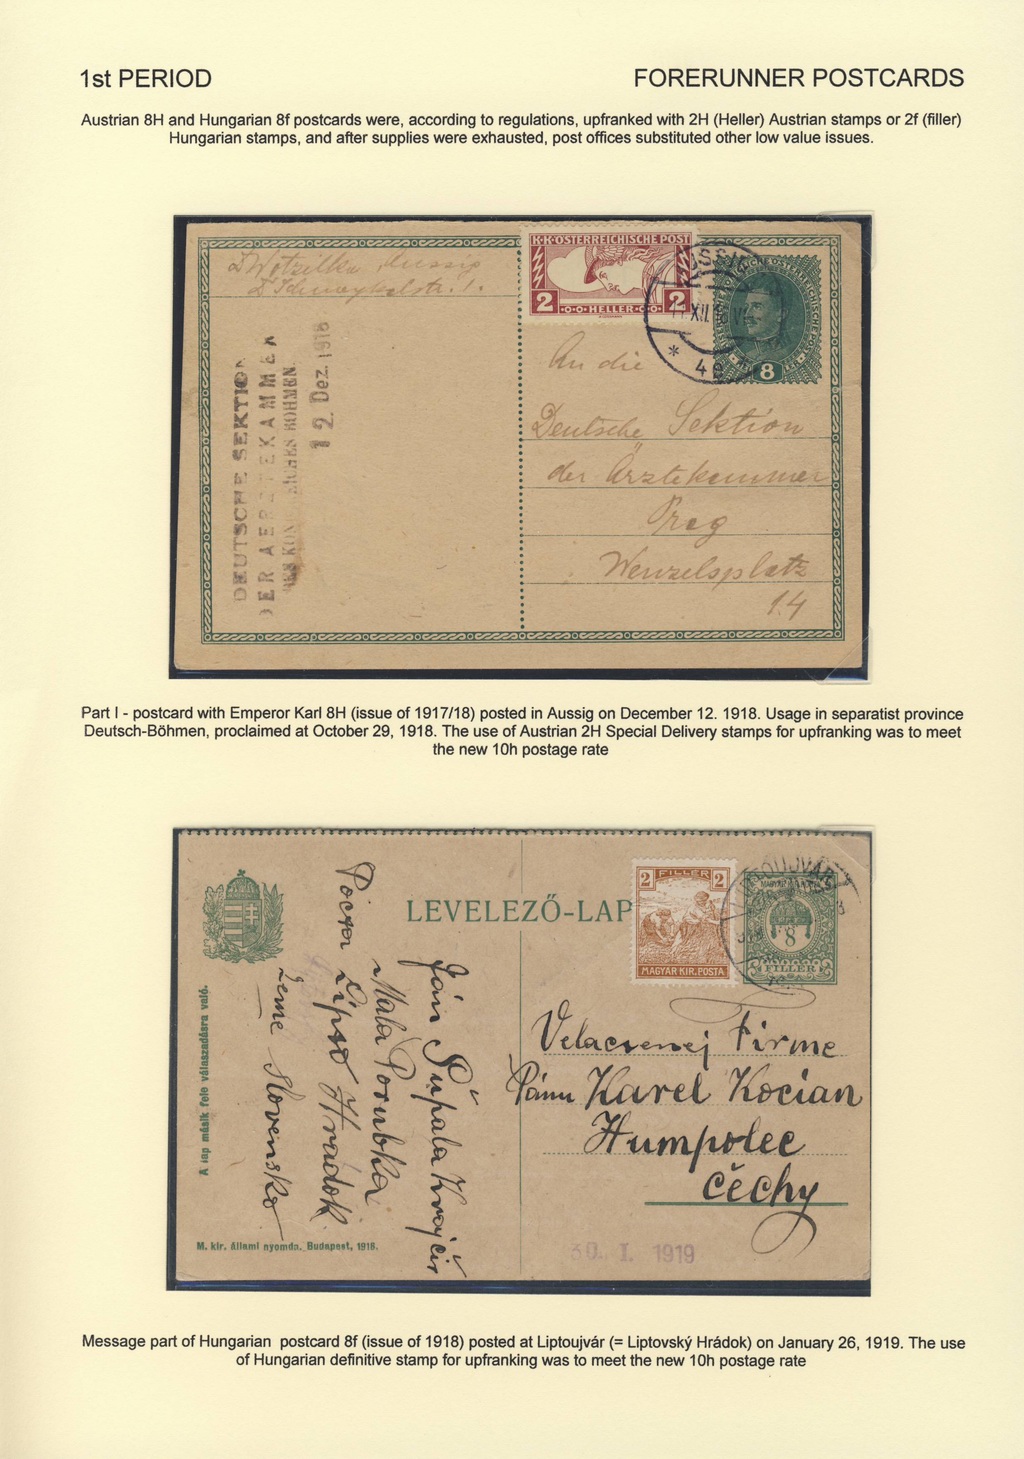 1st PERIOD
FORERUNNER POSTCARDS
Austrian 8H and Hungarian 8f postcards were, according to regulations, upfranked with 2H (Heller) Austrian stamps or 2f (filler)
Hungarian stamps, and after supplies were exhausted, post offices substituted other low value issues.
K·K·ÖSTERREICHISCHE POST
2 HELLER 2
8
XII 18
DEUTSCHE SEKTION
DER AERZTEKAMMER
12. Dez. 1918
An die
Deutsche Sektion
der Ärztekammer
Prag
Wenzelsplatz
14
Part I - postcard with Emperor Karl 8H (issue of 1917/18) posted in Aussig on December 12. 1918. Usage in separatist province
Deutsch-Böhmen, proclaimed at October 29, 1918. The use of Austrian 2H Special Delivery stamps for upfranking was to meet
the new 10h postage rate
LEVELEZŐ-LAP
2 FILLER 2
MAGYAR KIR. POSTA
8
FILLER
A lap másik fele válaszadásra való.
M. kir. állami nyomda. Budapest, 1918.
Ján Pupala Krajčír
Mala Porubka
Pocta Lipto Hradok
Zeme Slovensko
Firme
Pánu Karel Kocian
Humpolec
Čechy
30. I. 1919
Message part of Hungarian postcard 8f (issue of 1918) posted at Liptoujvár (= Liptovský Hrádok) on January 26, 1919. The use
of Hungarian definitive stamp for upfranking was to meet the new 10h postage rate